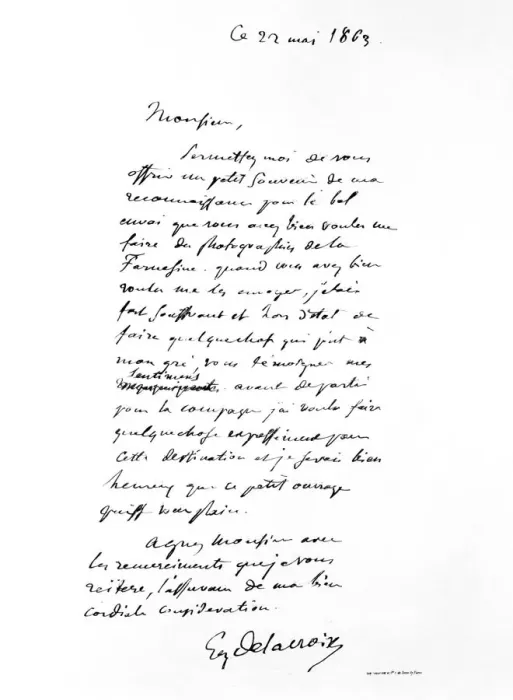 Ce 22 mai 1863.
Monsieur,
Permettez moi de vous
offrir un petit souvenir de ma
reconnaissance pour le bel
envoi que vous avez bien voulu me
faire des photographies de la
Farnesine. quand vous avez bien
voulu me les envoyer, j'étais
fort souffrant et hors d'état de
faire quelque chose qui put à
mon gré, vous témoigner mes
sentiments avant de partir
pour la campagne j'ai voulu faire
quelque chose expressément pour
cette destination et je serais bien
heureux que ce petit ouvrage
puisse vous plaire.
Agréez Monsieur avec
les remerciments que je vous
réitère, l'assurance de ma bien
cordiale considération.
Eug Delacroix